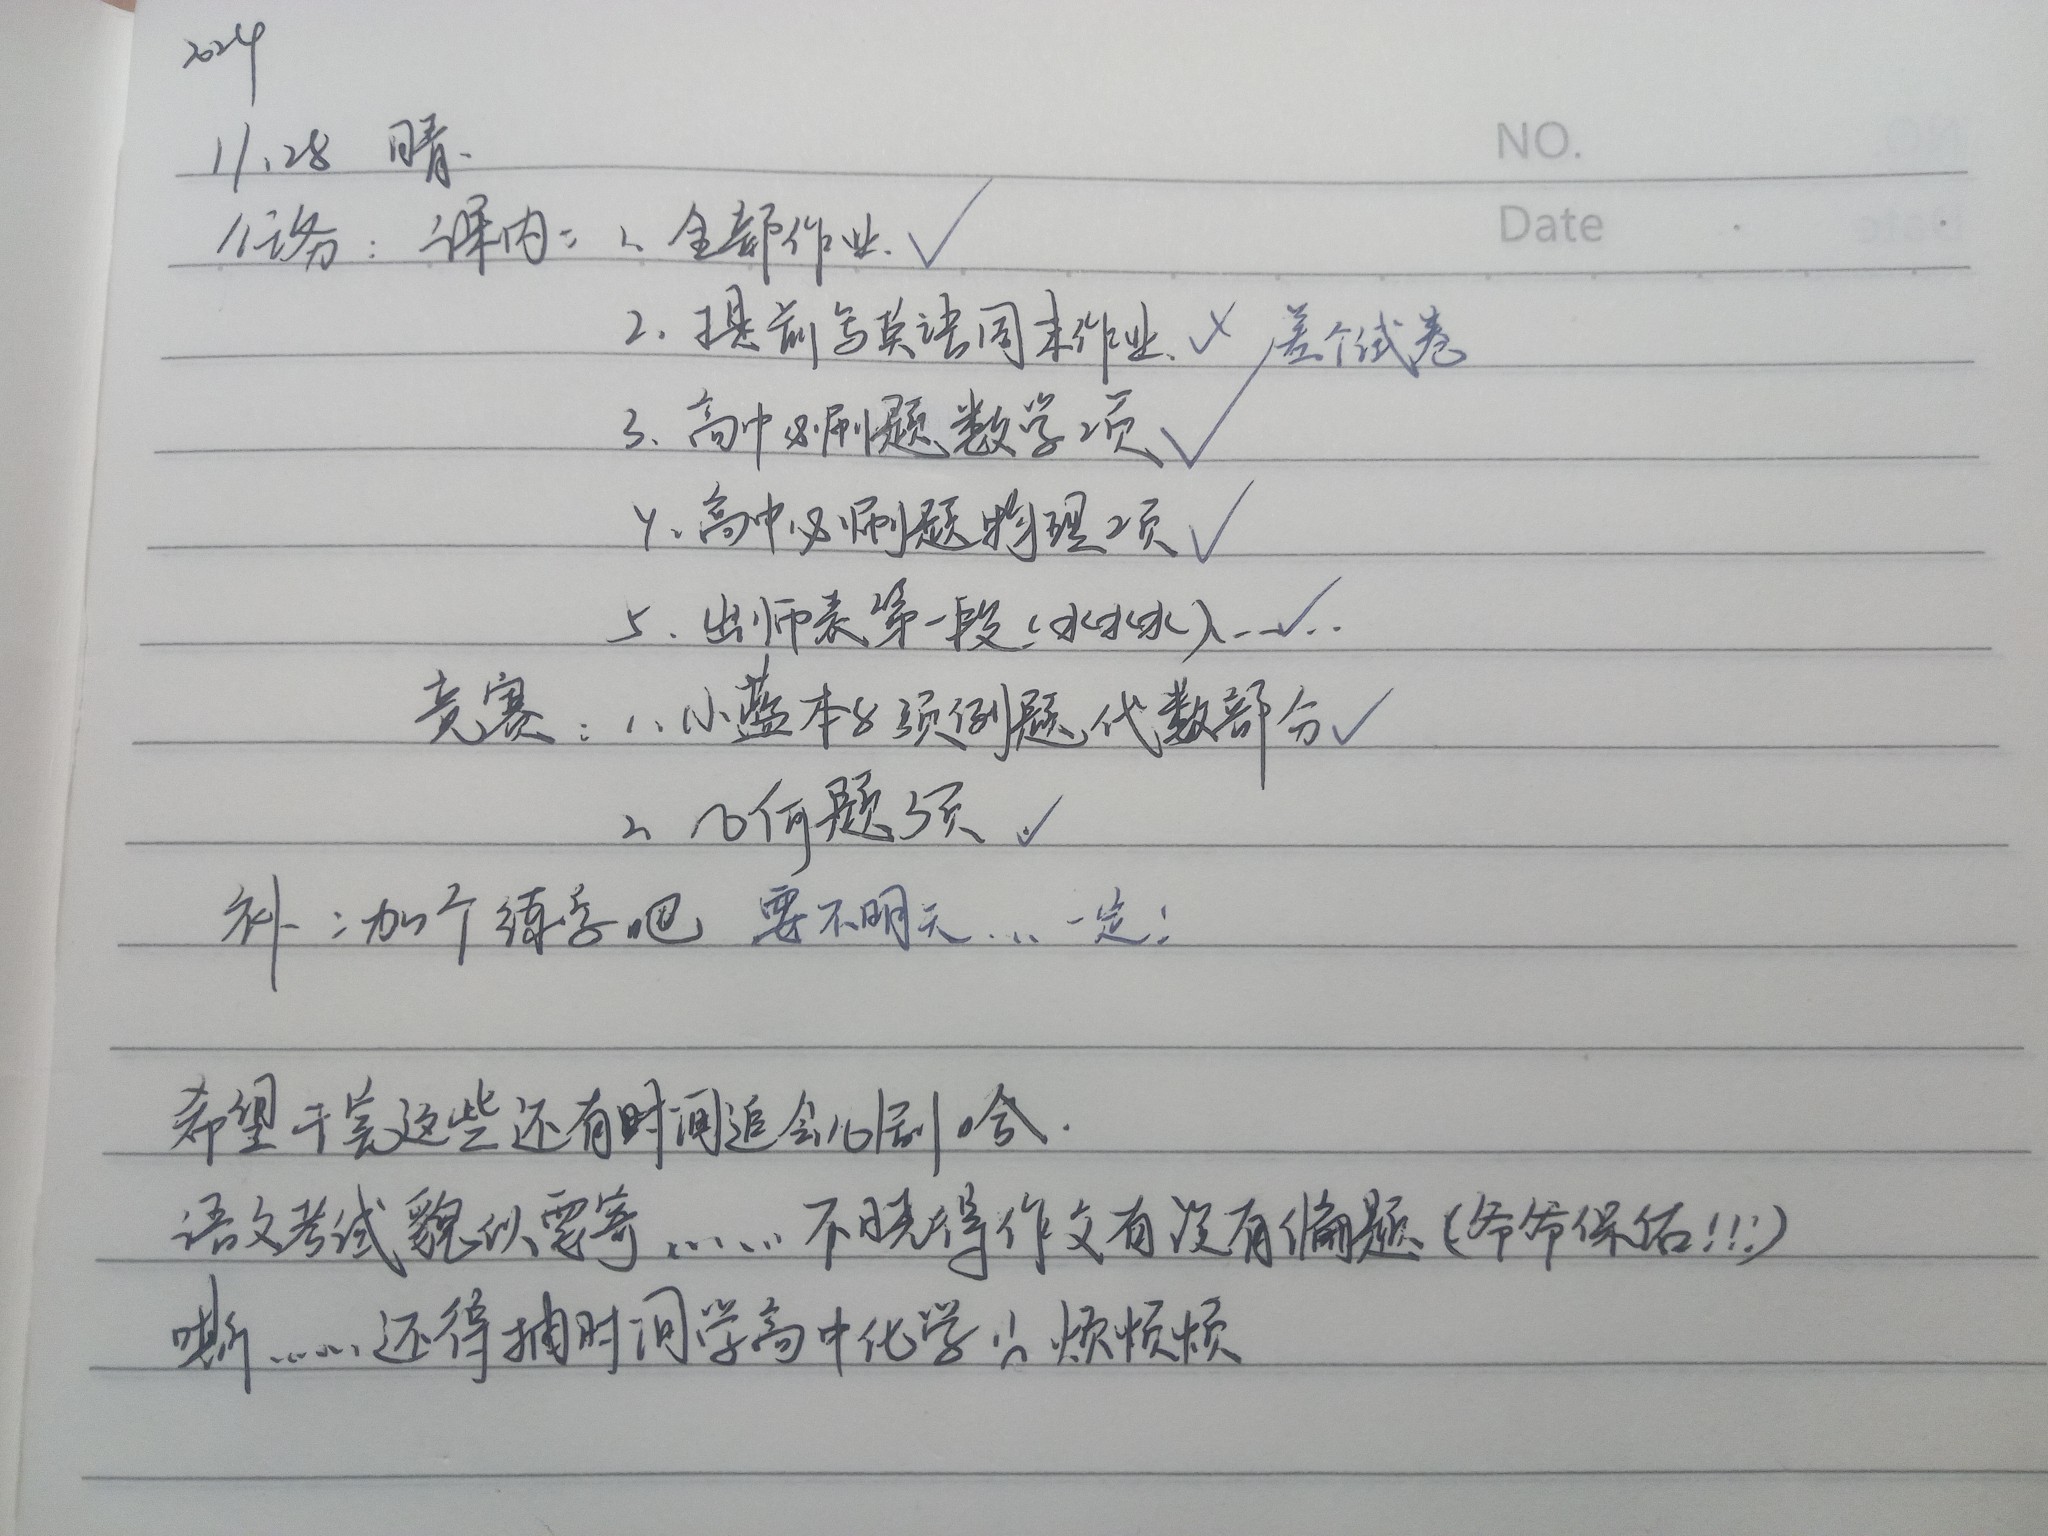 2024
11.28 晴.
NO.
任务: 课内: 1. 全部作业. ✓
Date
2. 提前写英语周末作业. ✗ 差个试卷
3. 高中必刷题数学2页 ✓
4. 高中必刷题物理2页 ✓
5. 出师表第一段(水水水)..✓..
竞赛: 1. 小蓝本8页例题代数部分 ✓
2. 几何题3页 ✓
补: 加个练字吧 要不明天... 一定!
希望干完这些还有时间追会儿剧哈.
语文考试貌似要寄......不晓得作文有没有偏题(爷爷保佑!!!)
嘶......还得抽时间学高中化学 烦烦烦